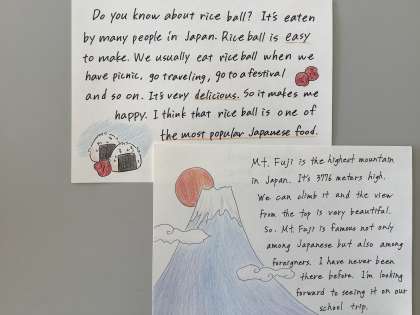 Do you know about rice ball? It's eaten
by many people in Japan. Rice ball is easy
to make. We usually eat rice ball when we
have picnic, go traveling, go to a festival
and so on. It's very delicious. So it makes me
happy. I think that rice ball is one of
the most popular Japanese food.
Mt. Fuji is the highest mountain
in Japan. It's 3776 meters high.
We can climb it and the view
from the top is very beautiful.
So, Mt. Fuji is famous not only
among Japanese but also among
foreigners. I have never been
there before. I'm looking
forward to seeing it on our
school trip.